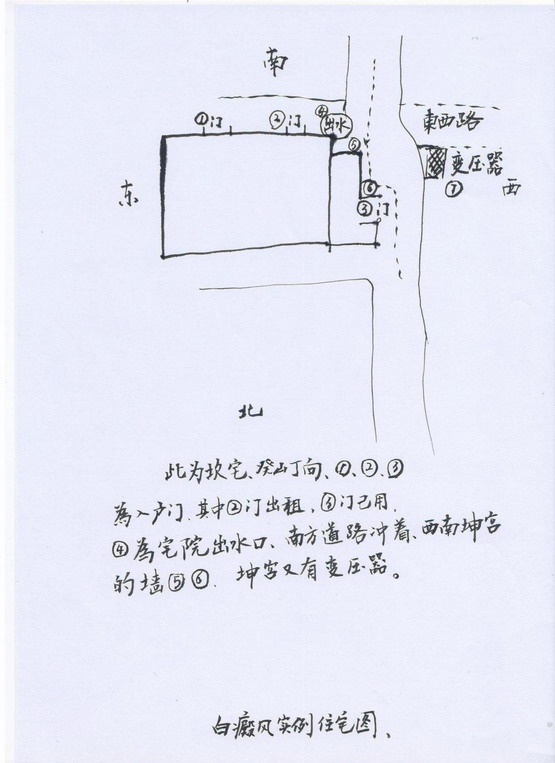 南
①门
②门
④
出水
⑤
東西路
变压器
⑦
西
东
⑥
③门
北
此为坎宅、癸山丁向、①、②、③
為入户门.其中②门出租,③门己用.
④為宅院出水口、南方道路冲着、西南坤宫
的墙⑤⑥.坤宫又有变压器。
白癜风实例住宅图、